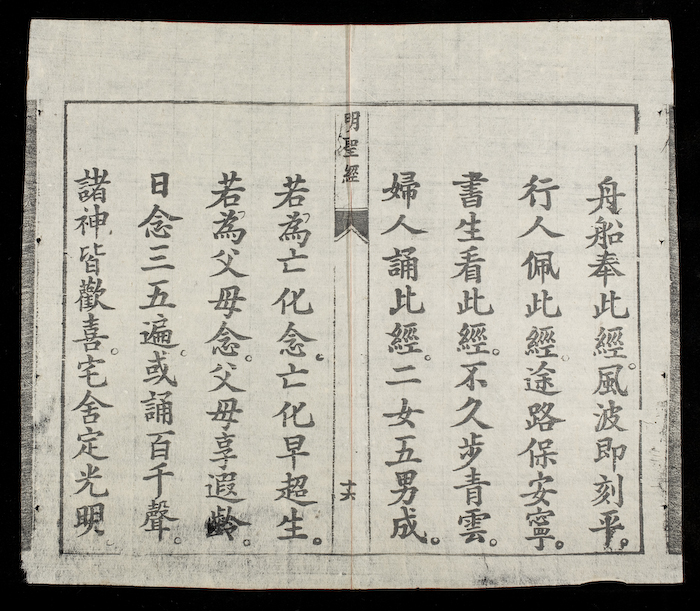 舟船奉此經。風波即刻平。
行人佩此經。途路保安寧。
書生看此經。不久步青雲。
婦人誦此經。二女五男成。
明聖經
十六
若為亡化念。亡化早超生。
若為父母念。父母享遐齡。
日念三五遍。或誦百千聲。
諸神皆歡喜。宅舍定光明。